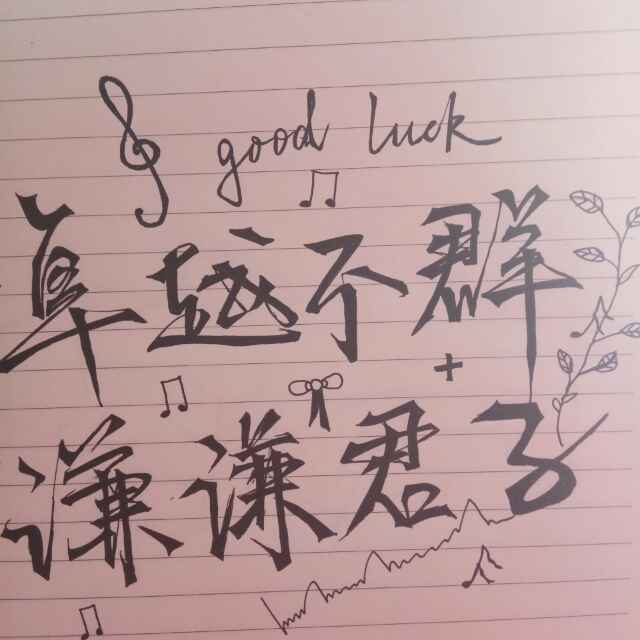 good luck
卓越不群
谦谦君子